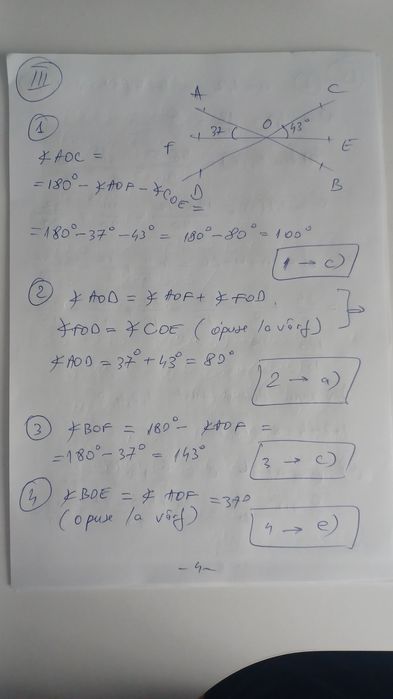 III
A C
1
37 O 43°
∢AOC = F E
= 180° - ∢AOF - ∢COE =
D B
= 180° - 37° - 43° = 180° - 80° = 100°
1 → c)
2 ∢AOD = ∢AOF + ∢FOD.
∢FOD = ∢COE (opuse la vârf) ⇒
∢AOD = 37° + 43° = 80°
2 → a)
3 ∢BOF = 180° - ∢AOF =
= 180° - 37° = 143°
3 → c)
4 ∢BOE = ∢AOF = 37°
(opuse la vârf)
4 → e)
- 4 -